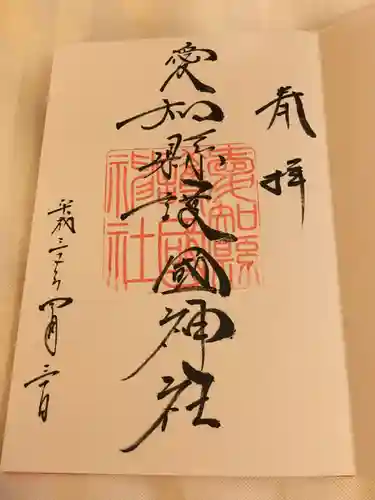 奉拝
愛知縣護國神社
愛知縣護國神社
平成三十年四月三十日